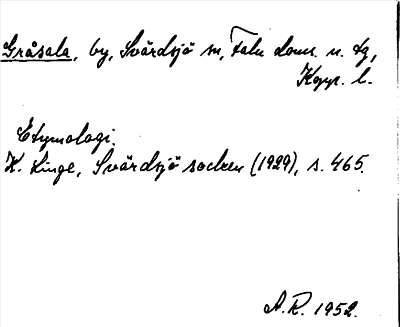 Gråsala, by, Svärdsjö sn, Falu doms. n. tg,
Kopp. l.
Etymologi.
K. Linge, Svärdsjö socken (1929), s. 465.
A.R. 1952.